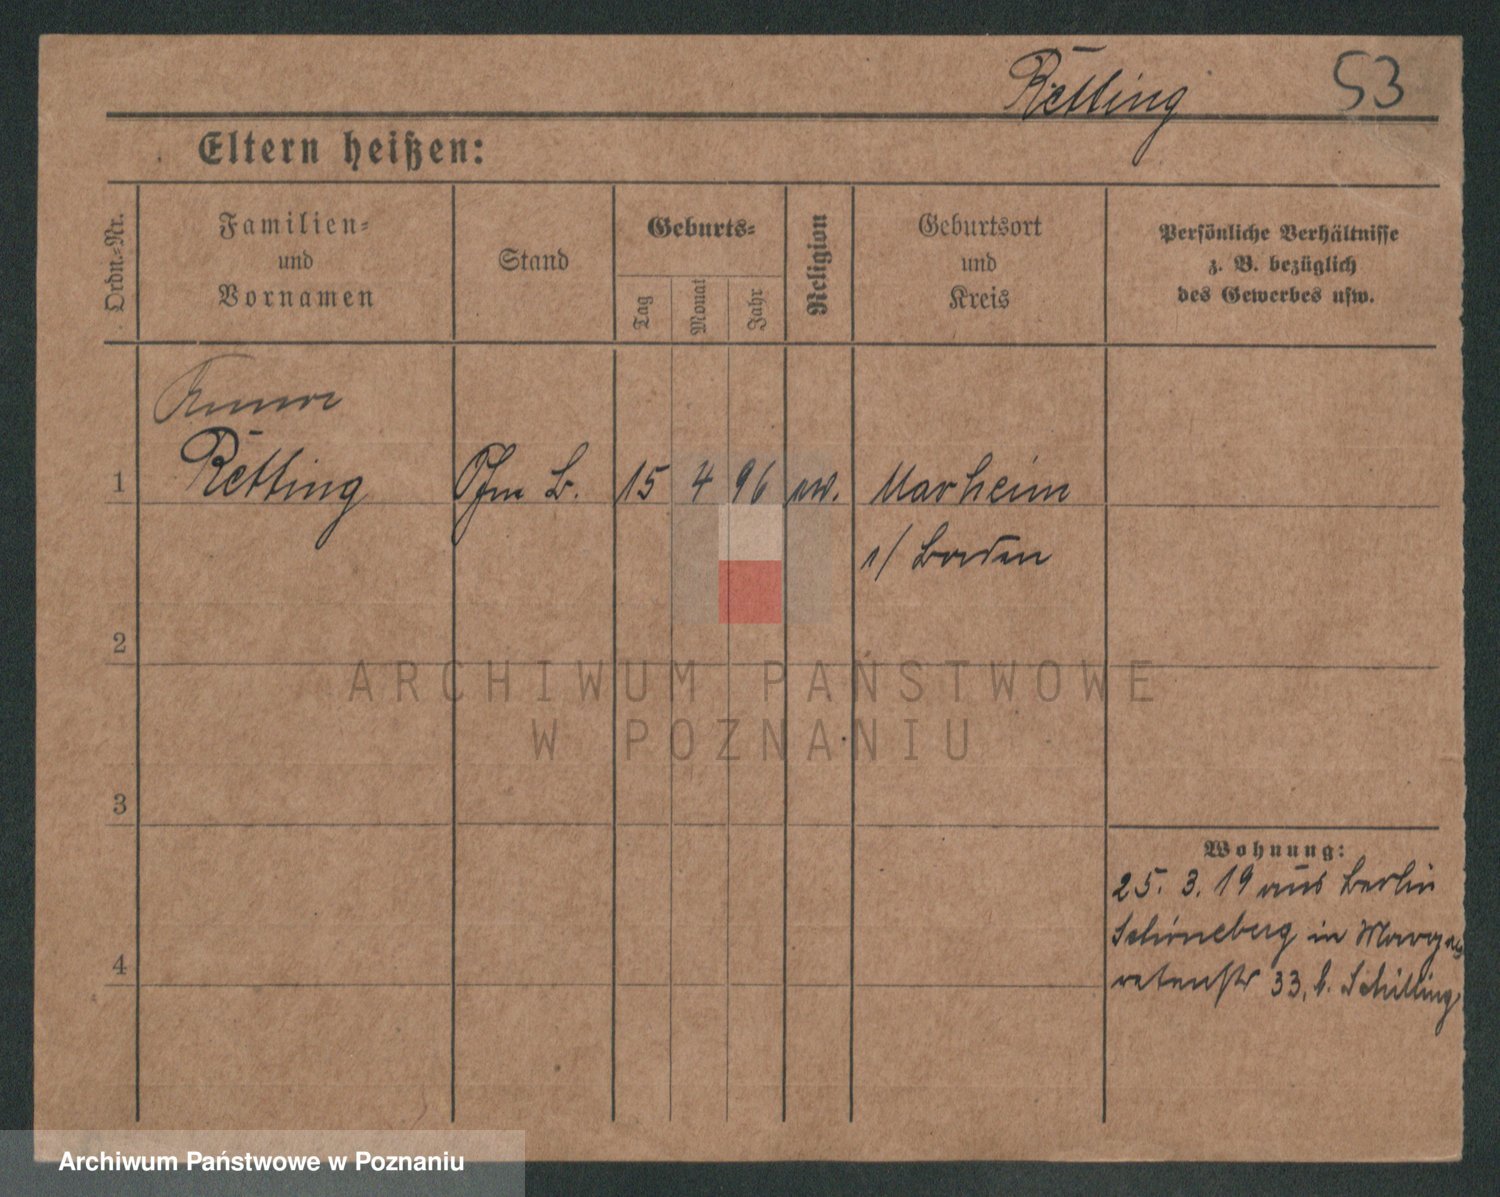 Retting 53
Eltern heißen:
Ordn.-Nr.
Familien-
und
Vornamen
Stand
Geburts-
Tag
Monat
Jahr
Religion
Geburtsort
und
Kreis
Persönliche Verhältnisse
z. B. bezüglich
des Gewerbes usw.
1 Retting B. 15 4 96 ev. Marheim
i/ Baden
2
3
4
Wohnung:
25. 3. 19 aus Berlin
Schöneberg in Marga
retenstr 33, b. Schilling
ARCHIWUM PAŃSTWOWE
W POZNANIU
Archiwum Państwowe w Poznaniu